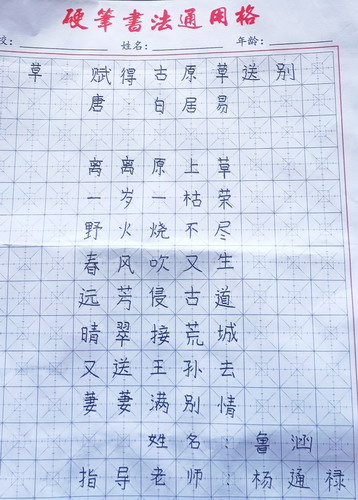 硬筆書法通用格
校：
姓名：
年龄：
草 赋得古原草送别
唐：白居易
离离原上草
一岁一枯荣
野火烧不尽
春风吹又生
远芳侵古道
晴翠接荒城
又送王孙去
萋萋满别情
姓名：鲁涵
指导老师：杨通禄